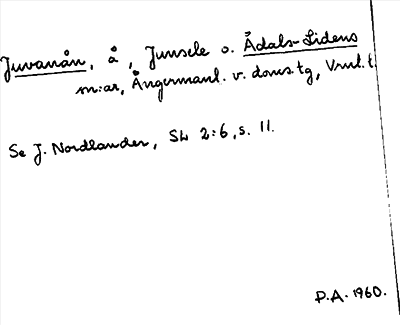 Juvanån, å, Junsele o. Ådals-Lidens
m:ar, Ångermanl. v. doms.tg, Vrnl. t.
Se J. Nordlander, SL 2:6, s. 11.
P.A. 1960.